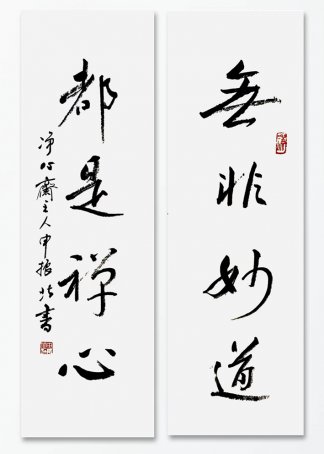 無非妙道
都是禅心
净心齋主人申振北書